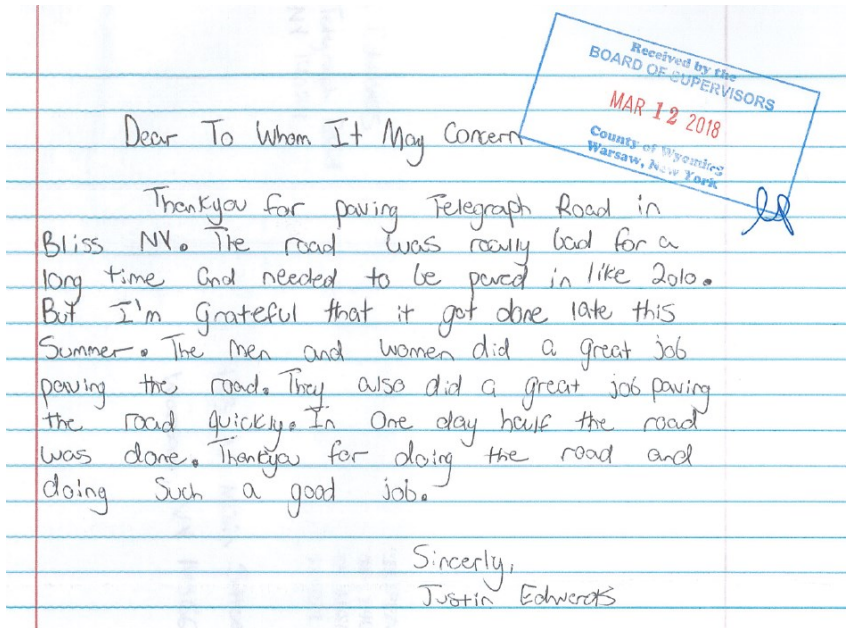 Received by the
BOARD OF SUPERVISORS
MAR 12 2018
County of Wyoming
Warsaw, New York
Dear To Whom It May Concern
Thankyou for paving Telegraph Road in
Bliss NY. The road was really bad for a
long time and needed to be paved in like 2010.
But I'm grateful that it got done late this
Summer. The men and women did a great job
paving the road. They also did a great job paving
the road quickly. In One day half the road
was done. Thankyou for doing the road and
doing Such a good job.
Sincerly,
Justin Edwards